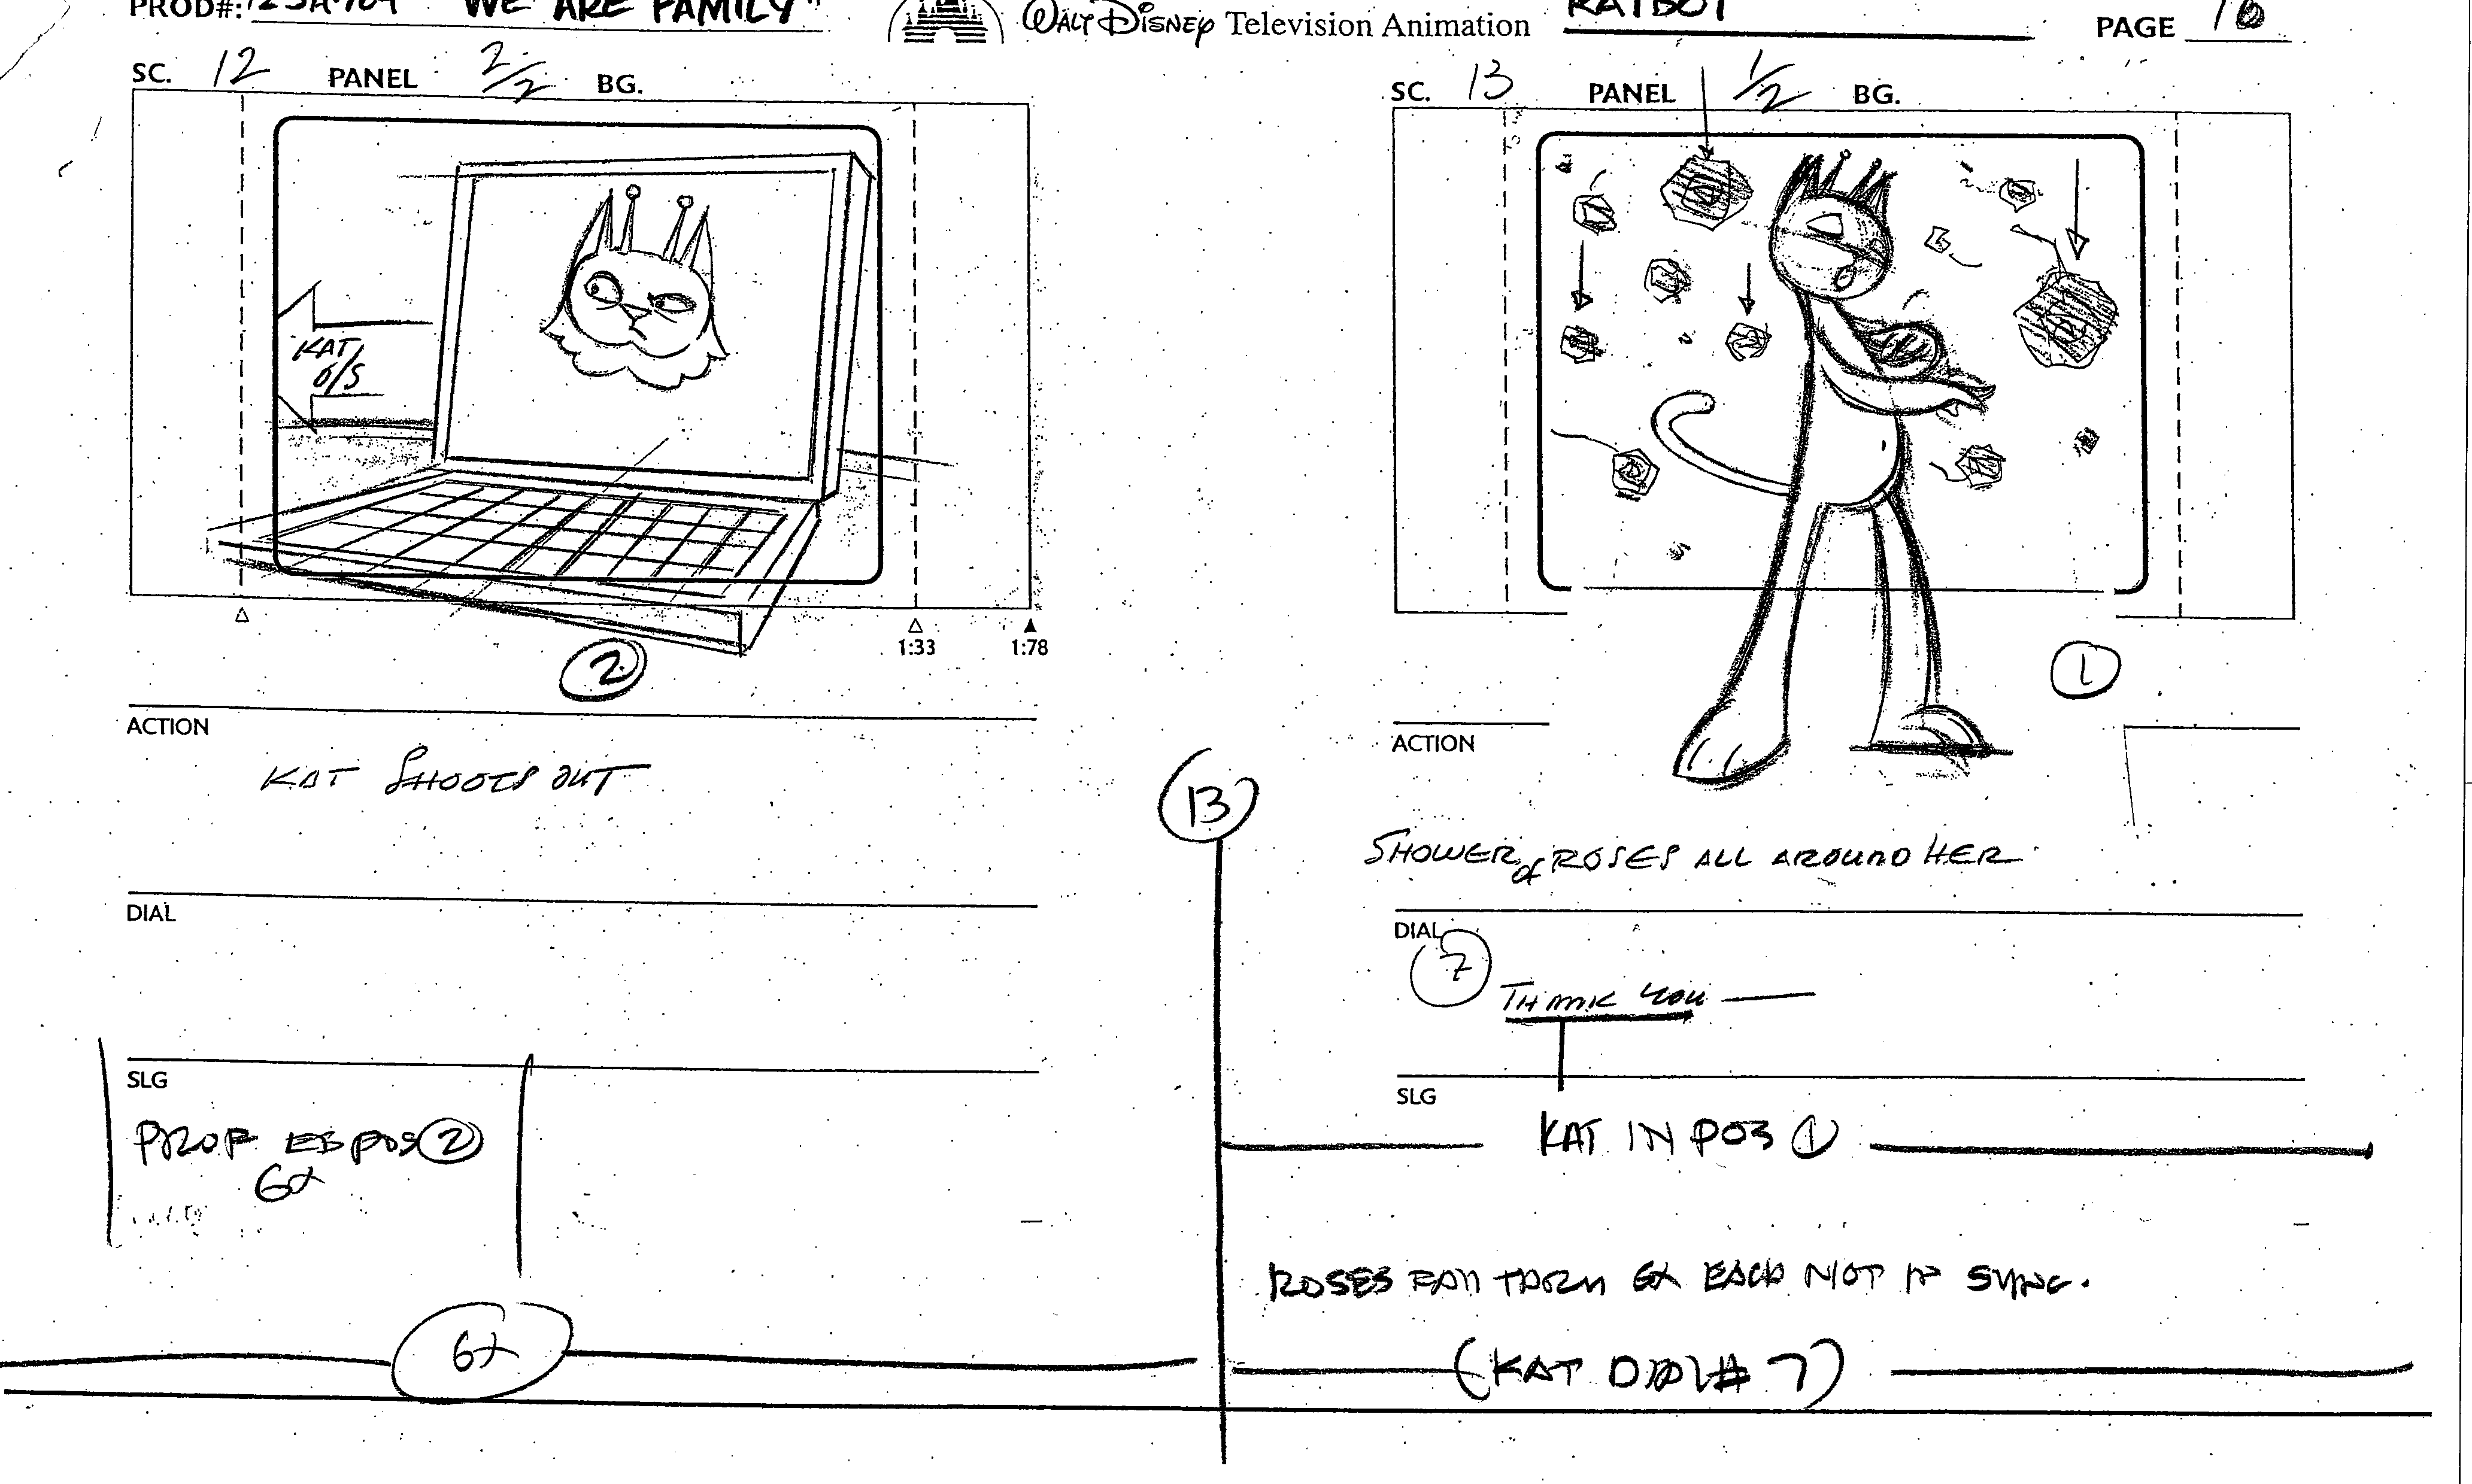 PROD#: "WE ARE FAMILY"
WALT DISNEY Television Animation
KATBOT
PAGE 16
SC. 12 PANEL 2/2 BG.
KAT
O/S
1:33
1:78
2
ACTION
KAT SHOOTS OUT
DIAL
SLG
PROF POS 2
6x
6x
13
SC. 13 PANEL 1/2 BG.
1
ACTION
SHOWER of ROSES ALL AROUND HER
DIAL
7
THANK YOU
SLG
KAT IN POS 1
ROSES 6x EACH NOT IN SYNC.
(KAT DIAL# 7)